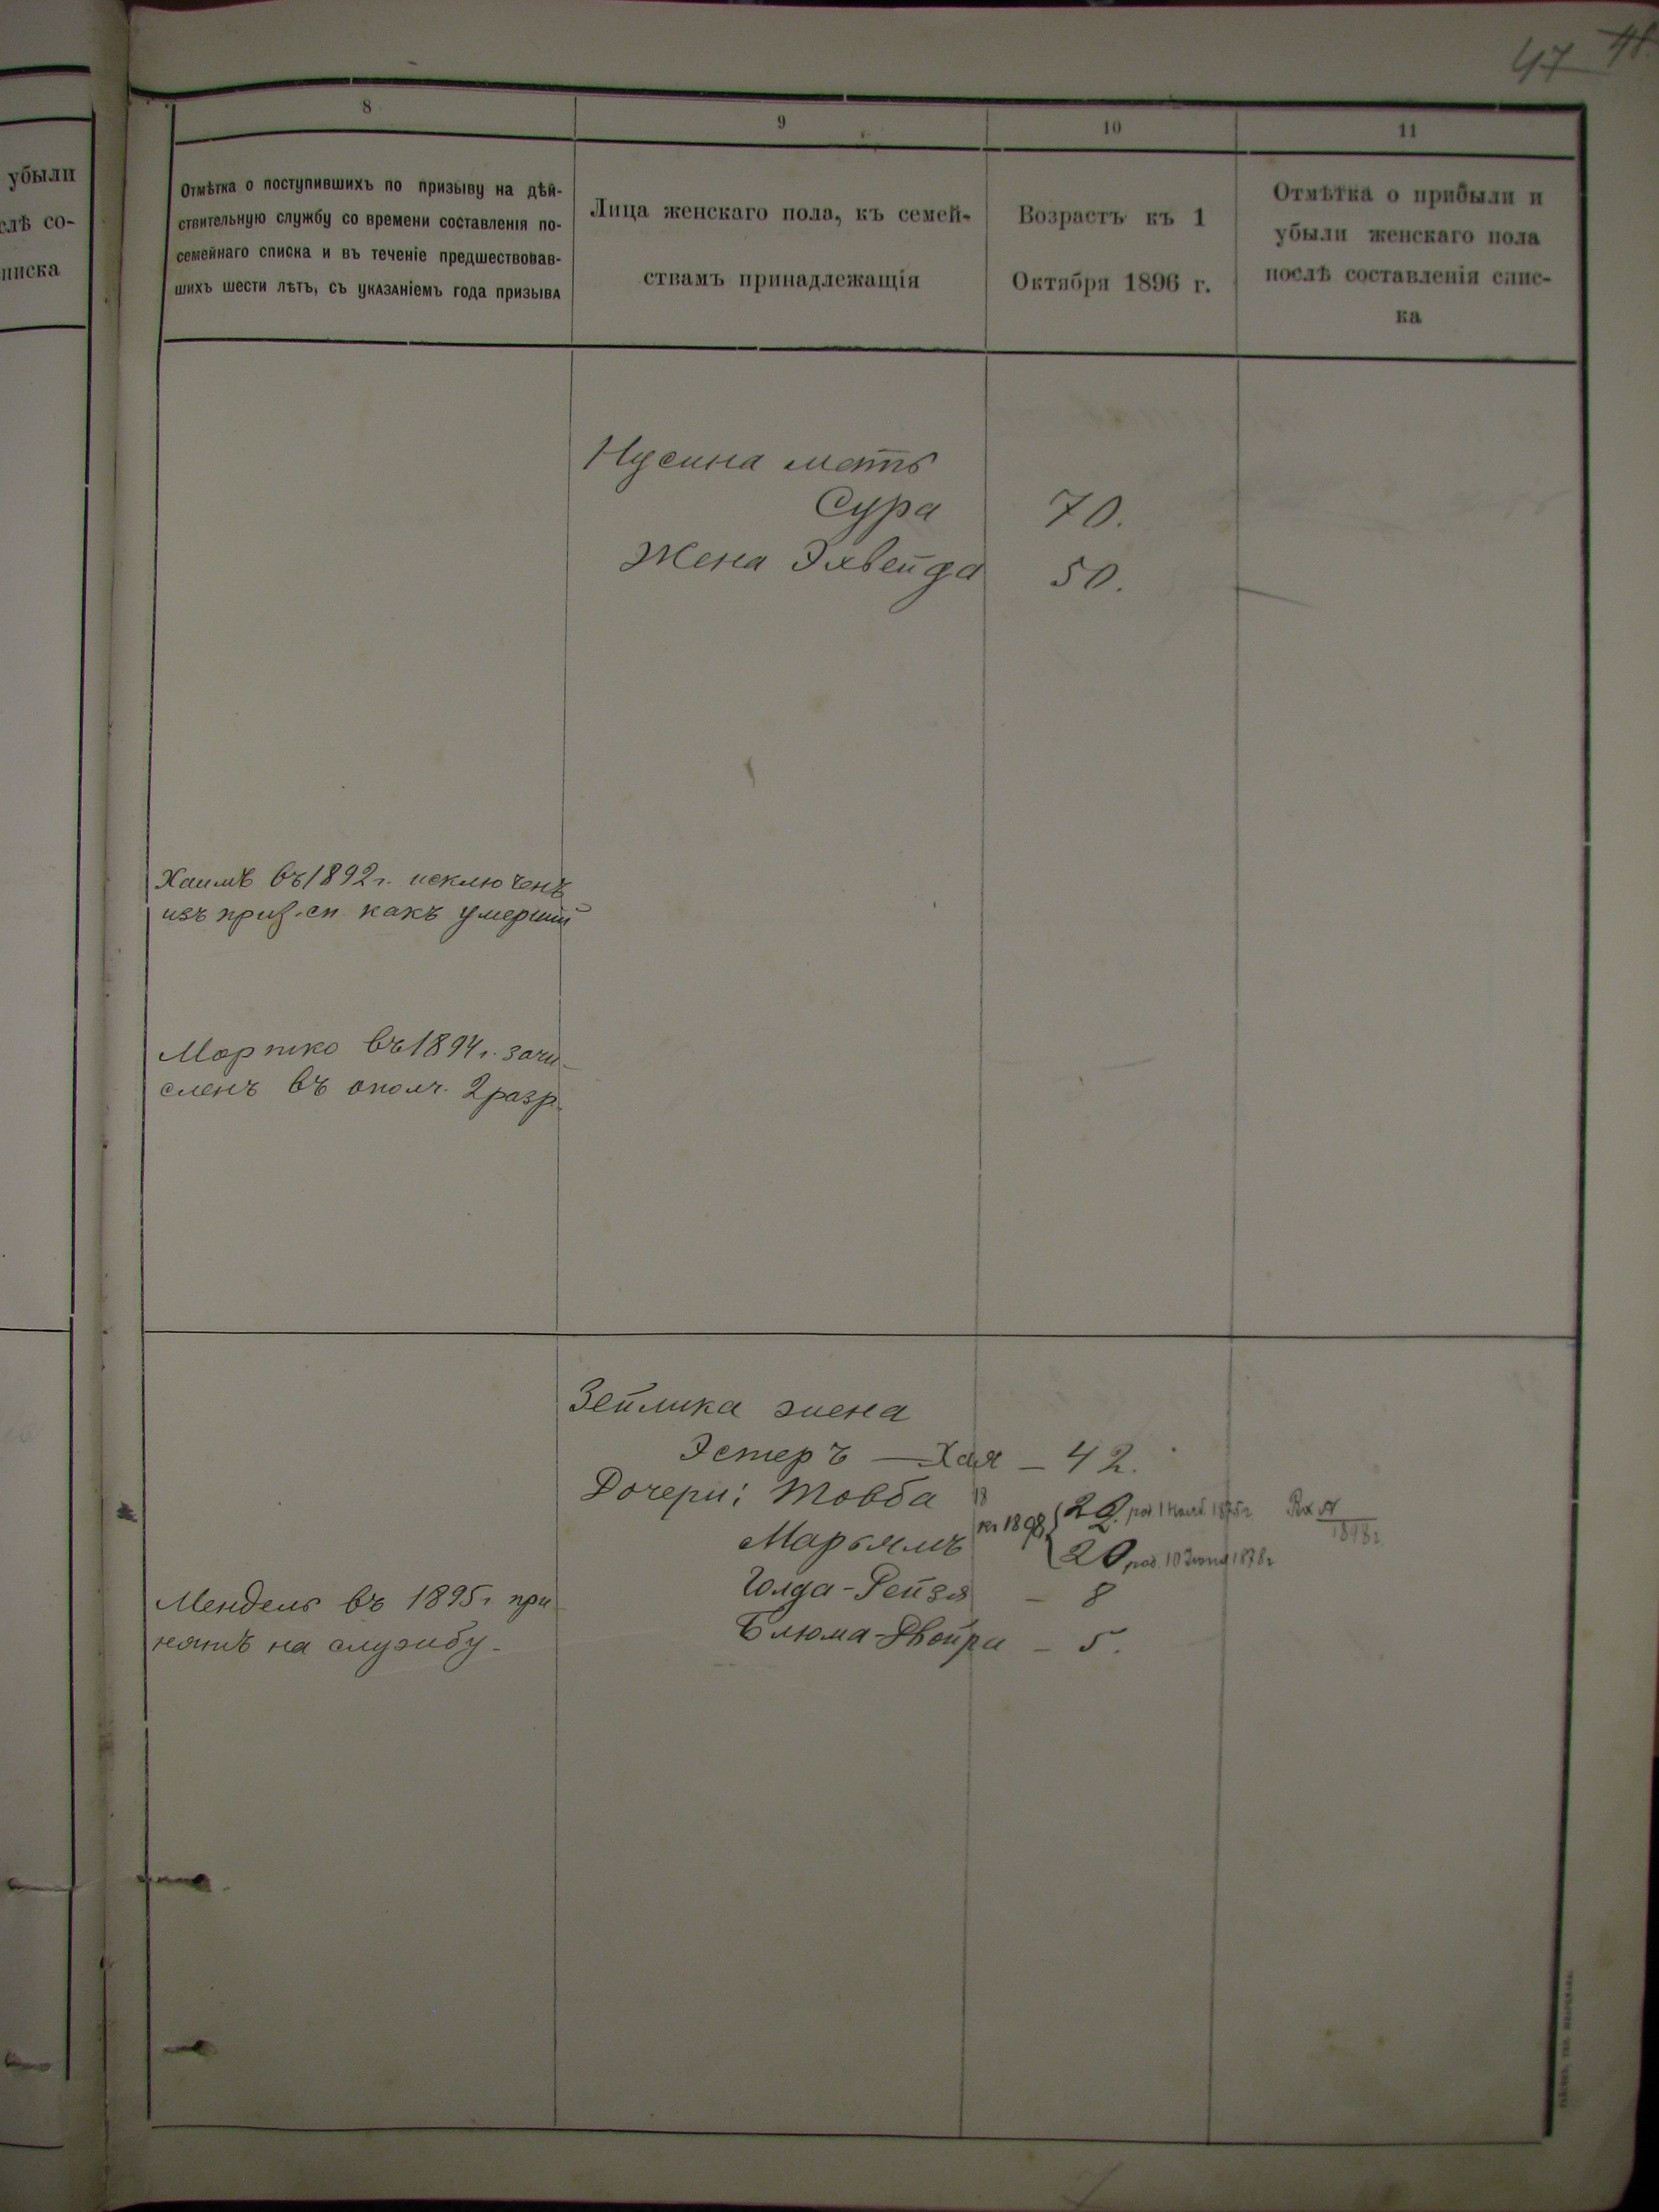 47 48
убыли
слѣ со-
писка
8
9
10
11
Отмѣтка о поступившихъ по призыву на дѣй-
ствительную службу со времени составленія по-
семейнаго списка и въ теченіе предшествовав-
шихъ шести лѣтъ, съ указаніемъ года призыва
Лица женскаго пола, къ семей-
ствамъ принадлежащія
Возрастъ къ 1
Октября 1896 г.
Отмѣтка о прибыли и
убыли женскаго пола
послѣ составленія спис-
ка
Нусина мать
Сура 70.
Жена Эхвейда 50.
Хаимъ въ 1892 г. исключенъ
изъ приз. сп. какъ умершій
Мортко въ 1894 г. зачи-
сленъ въ ополч. 2 разр.
Зейлика жена
Эстеръ — Хая — 42.
Дочери: Товба 18
къ 1898 22. род. 1 1875 г.
1898 г.
Марьямъ 20 род. 10 1878 г.
Голда-Рейзя — 8
Блюма-Двойра — 5.
Мендель въ 1895 г. при
нятъ на службу.